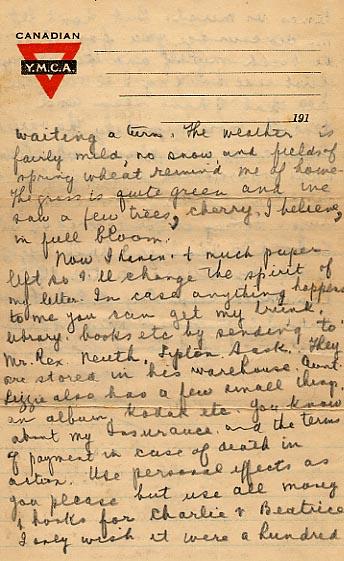 CANADIAN
Y.M.C.A.
191
waiting a turn. The weather is
fairly mild, no snow and fields of
spring wheat remind me of home.
The grass is quite green and we
saw a few trees, cherry, I believe,
in full bloom.
Now I haven't much paper
left so I'll change the spirit of
my letter. In case anything happens
to me you can get my trunk,
library books etc by sending to
Mr. Rex Sask. They
are stored in his warehouse. Aunt
Lizzie also has a few small things
an album, Kodak etc. You know
about my Insurance and the terms
of payment in case of death in
action. Use personal effects as
you please but use all money
& books for Charlie & Beatrice
I only wish it were a hundred